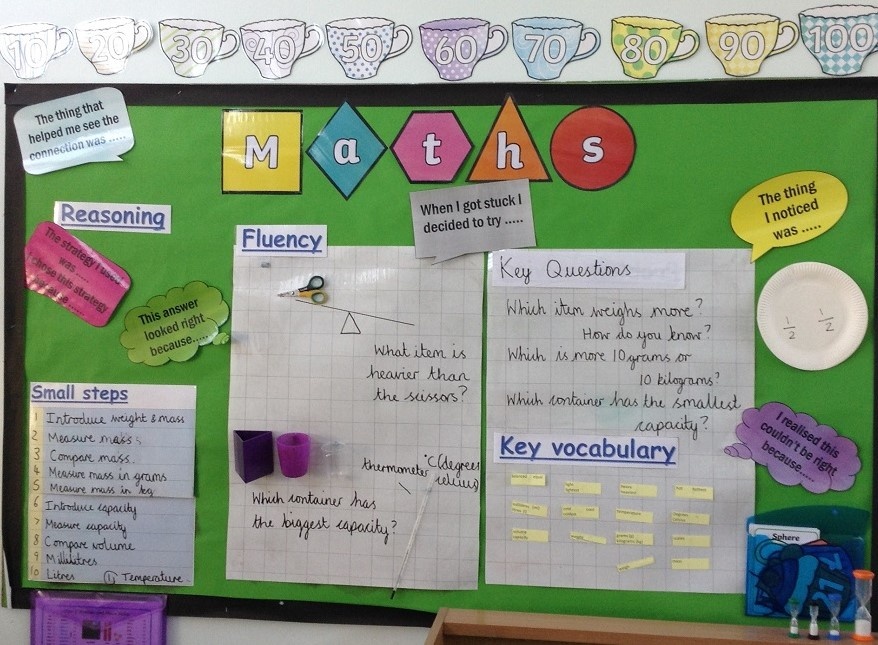 10 20 30 40 50 60 70 80 90 100
The thing that
helped me see the
connection was .....
M a t h s
When I got stuck I
decided to try .....
The thing
I noticed
was .....
Reasoning
The strategy I used
was .....
I chose this strategy
because .....
This answer
looked right
because.....
Small steps
1 Introduce weight & mass
2 Measure mass
3 Compare mass
4 Measure mass in grams
5 Measure mass in kg
6 Introduce capacity
7 Measure capacity
8 Compare volume
9 Millilitres
10 Litres 11 Temperature
Fluency
What item is
heavier than
the scissors?
thermometer °C (degrees
celcius)
Which container has
the biggest capacity?
Key Questions
Which item weighs more?
How do you know?
Which is more 10 grams or
10 kilograms?
Which container has the smallest
capacity?
Key vocabulary
1/2 1/2
I realised this
couldn't be right
because.....
Sphere